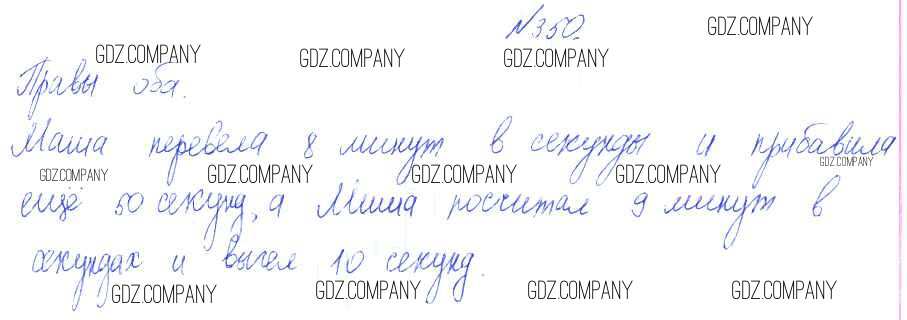 №350.
Правы оба.
Маша перевела 8 минут в секунды и прибавила
ещё 50 секунд, а Миша посчитал 9 минут в
секундах и вычел 10 секунд.
GDZ.COMPANY
GDZ.COMPANY
GDZ.COMPANY
GDZ.COMPANY
GDZ.COMPANY
GDZ.COMPANY
GDZ.COMPANY
GDZ.COMPANY
GDZ.COMPANY
GDZ.COMPANY
GDZ.COMPANY
GDZ.COMPANY
GDZ.COMPANY